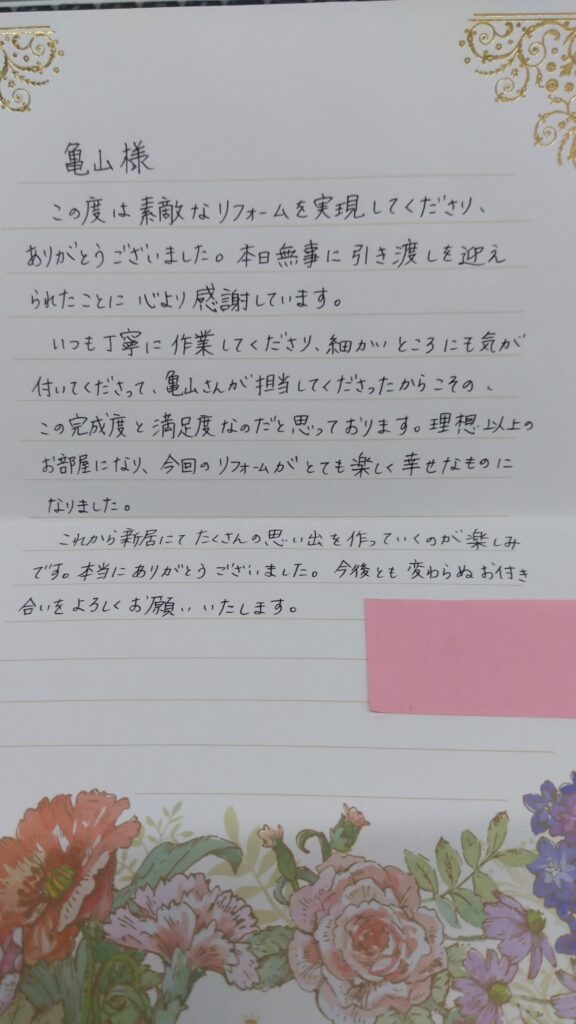 亀山様
この度は素敵なリフォームを実現してくださり、
ありがとうございました。本日無事に引き渡しを迎え
られたことに心より感謝しています。
いつも丁寧に作業してくださり、細かいところにも気が
付いてくださって、亀山さんが担当してくださったからこその、
この完成度と満足度なのだと思っております。理想以上の
お部屋になり、今回のリフォームがとても楽しく幸せなものに
なりました。
これから新居にてたくさんの思い出を作っていくのが楽しみ
です。本当にありがとうございました。今後とも変わらぬお付き
合いをよろしくお願いいたします。